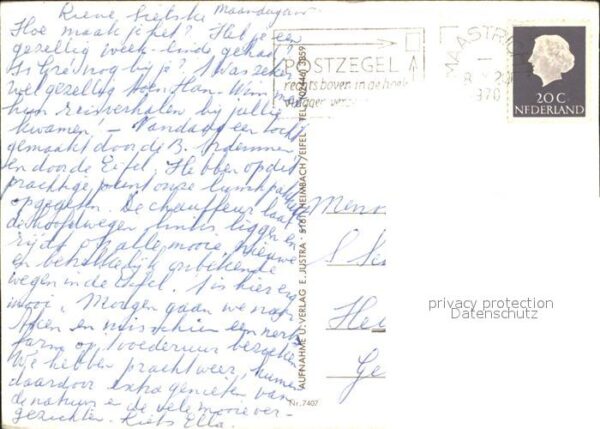 Maandagav
Lieve Sietske
Hoe maak je het? Heb je een
gezellig week-eind gehad?
Is Gré nog bij je? 't Was zeker
wel gezellig toen Han, Wim
hun reisverhalen bij jullie
kwamen! – Vandaag een tocht
gemaakt door de B. Ardennen
en door de Eifel, We hebben op dit
prachtige punt onze lunchpakket
opgegeten. De chauffeur laat
de hoofdwegen links liggen en
rijdt op alle mooie, nieuwe
en betrekkelijk onbekende
wegen in de Eifel, 't is hier erg
mooi. Morgen gaan we naar
en misschien een
farm op voederuur bezoeken
We hebben prachtweer, kunnen
daardoor extra genieten van
de natuur en de vele mooie ver-
gezichten. Liefs Ella.
AUFNAHME U. VERLAG E. JUSTRA · 5161 HEIMBACH/EIFEL · TEL. (02446) 3859
Nr. 7407
POSTZEGEL
rechts boven in de hoek
vlugger
MAASTRICHT
1970
20 C
NEDERLAND
Hei
Ge
privacy protection
Datenschutz